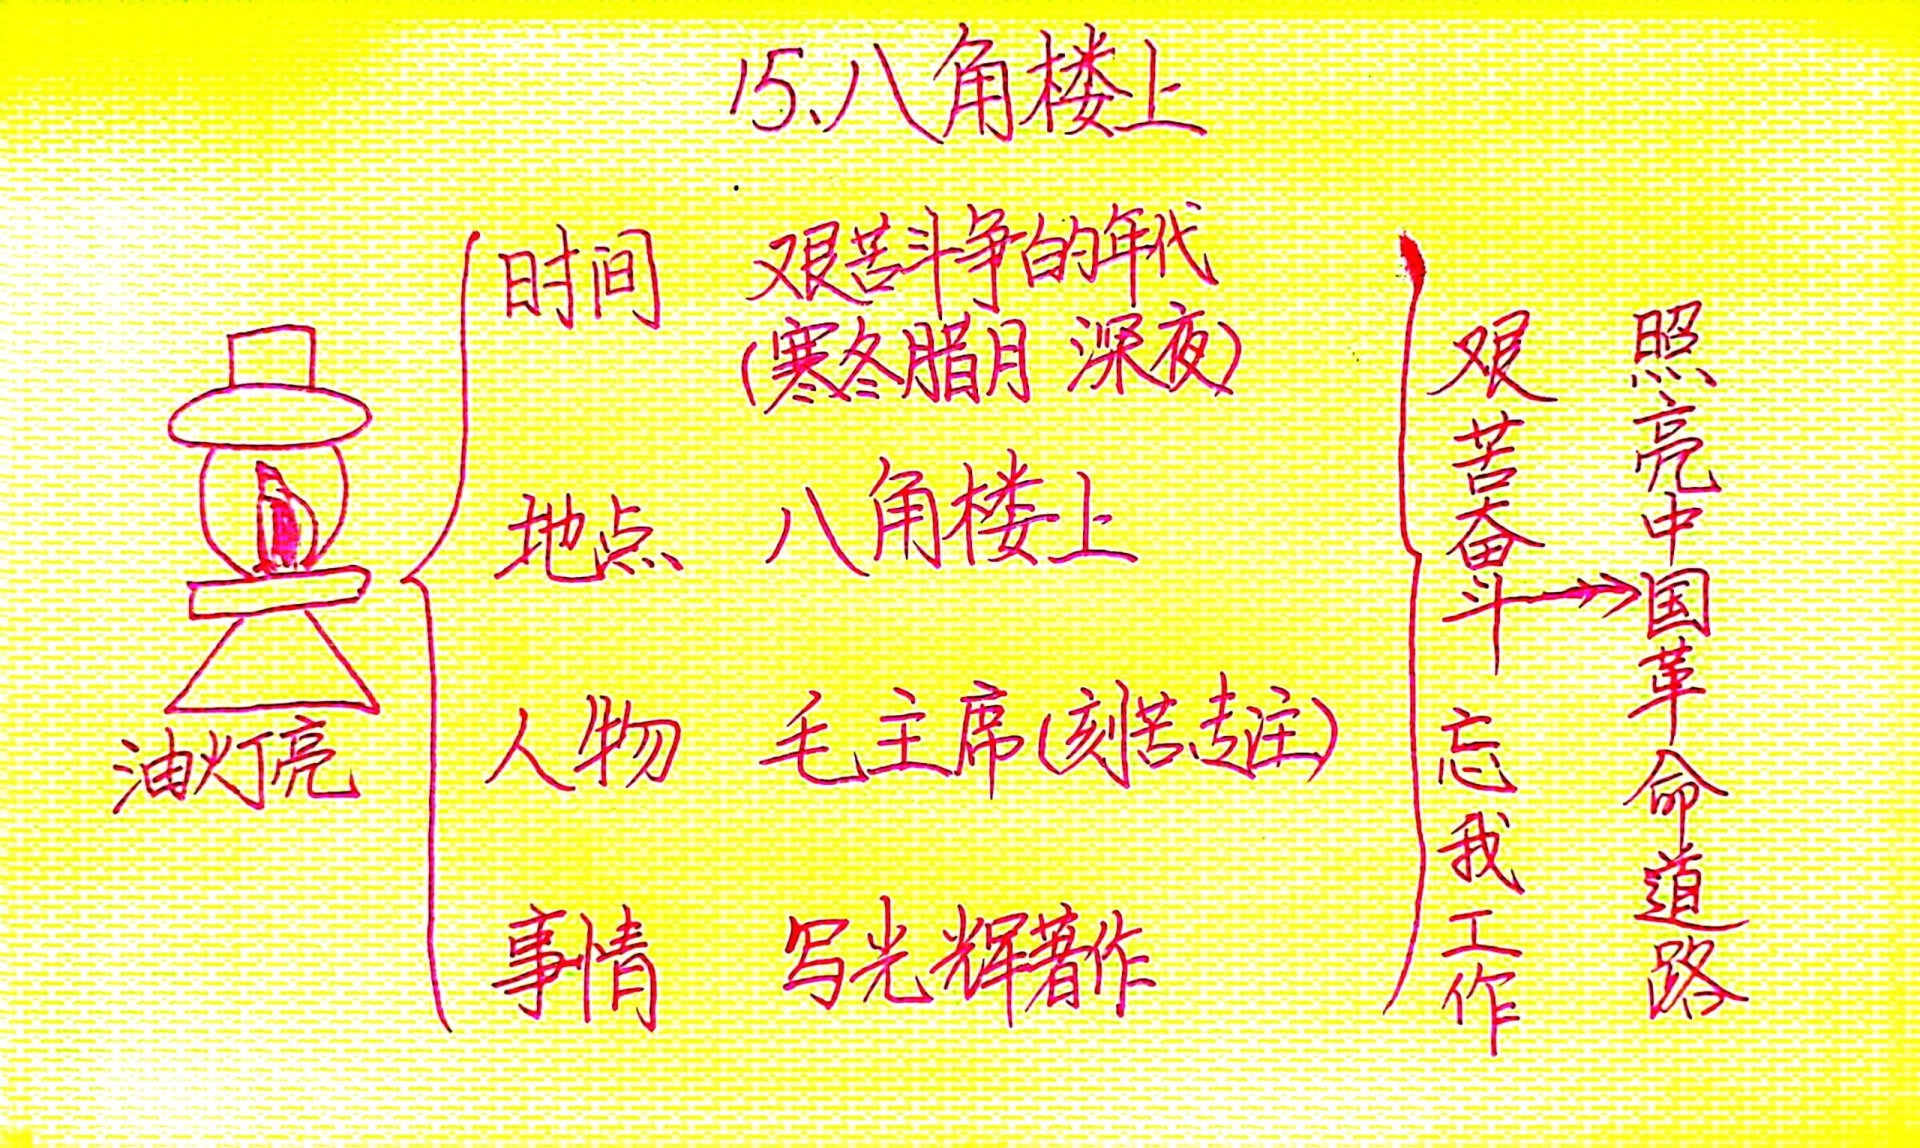 15、八角楼上
时间 艰苦斗争的年代
(寒冬腊月 深夜)
地点 八角楼上
人物 毛主席(刻苦、专注)
事情 写光辉著作
油灯亮
艰苦奋斗 忘我工作
照亮中国革命道路